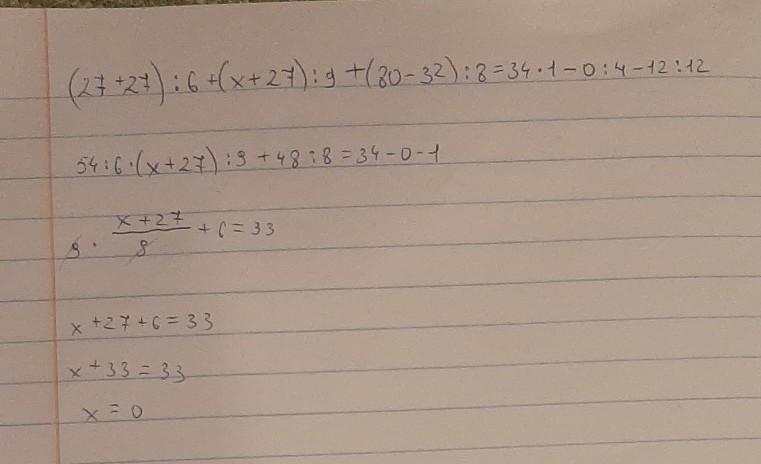 (27+27):6+(x+27):9+(80-32):8=34·1-0:4-12:12
54:6·(x+27):9+48:8=34-0-1
9·\frac{x+27}{9}+6=33
x+27+6=33
x+33=33
x=0